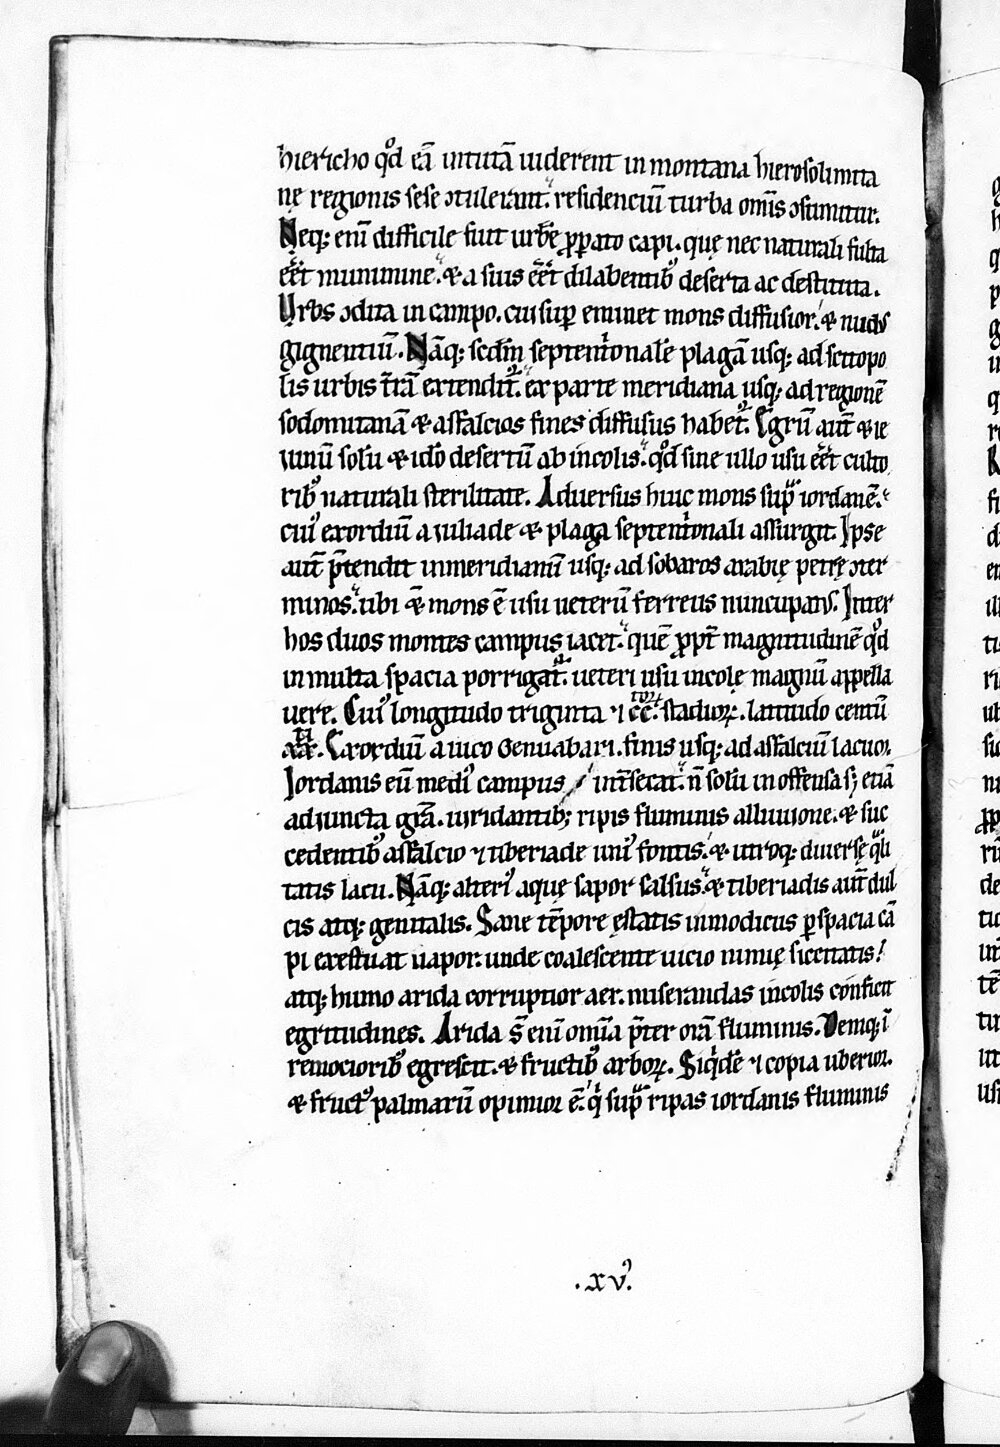 hiericho qͦd eā intutā uiderent in montana hierosolimita
nę regionis sese ↄtulerant. residenciū turba om̄is ↄsumitur.
Neq; eni᷒ difficile fuit urbē ꝓpꝑato capi. quę nec naturali fulta
eēt munimine. & a suis eēt dilabentibꝰ deserta ac destituta.
Urbs ↄdita in campo. cui sup̱ eminet mons diffusior. & nudus
gignentiū. Nāq; scdm̄ septentͥonalē plagā usq; ad scitopo
lis urbis t̄rā extenditͬ. ex parte meridiana usq; ad regionē
sodomitanā & asfalcios fines diffusus habetͬ. Egrū aut̄ & ie
iunū solū & ido desertū ab incolis. qͦd sine ullo usu eēt culto
ribꝰ naturali sterilitate. Aduersus huic mons supͣ iordanē.
cuiꝰ exordiū a iuliade & plaga septentͥonali assurgit. Ipse
aut̄ p̄tendit in meridianū usq; ad sobaros arabię petrę ↄter
minos. ubi & mons ē usu ueterū ferreus nuncupatꝰ. Inter
hos duos montes campus iacet. quē ꝓpt̄ magnitudinē qͦd
in multa spacia porrigatͬ. ueteri usu incolę magnū appella
uere. Cuiꝰ longitudo triginta ⁊ cc.toꝝ stadioꝝ. latitudo centū
xx.ti Exordiū a uico Gennabari. finis usq; ad asfalciū lacum.
Jordanis eū mediꝰ campus int̄secat. n̄ solū inoffensa sꝫ etiā
adiuncta gr̄a. uiridantibꝫ ripis fluminis alluuione. & suc
cedentibꝰ asfalcio ⁊ tiberiade uniꝰ fontis. & utroq; diuersę qͣli
tatis lacu. Nāq; alteriꝰ aquę sapor salsus. & tiberiadis aut̄ dul
cis atq; genitalis. Sane tēpore ęstatis inmodicus ꝑ spacia cā
pi exestuat uapor. unde coalescente uicio nimię siccitatis.
atq; humo arida corruptior aer. miserandas incolis conficit
egritudines. Arida s̄ eni᷒ omīa p̄ter orā fluminis. Deniq; ī
remocioribꝰ egrescit. & fructibꝰ arboꝝ. Siqͥdē ⁊ copia uberior.
& fructꝰ palmarū opimior ē. qͥ supͣ ripas iordanis fluminis
.xvꝰ.